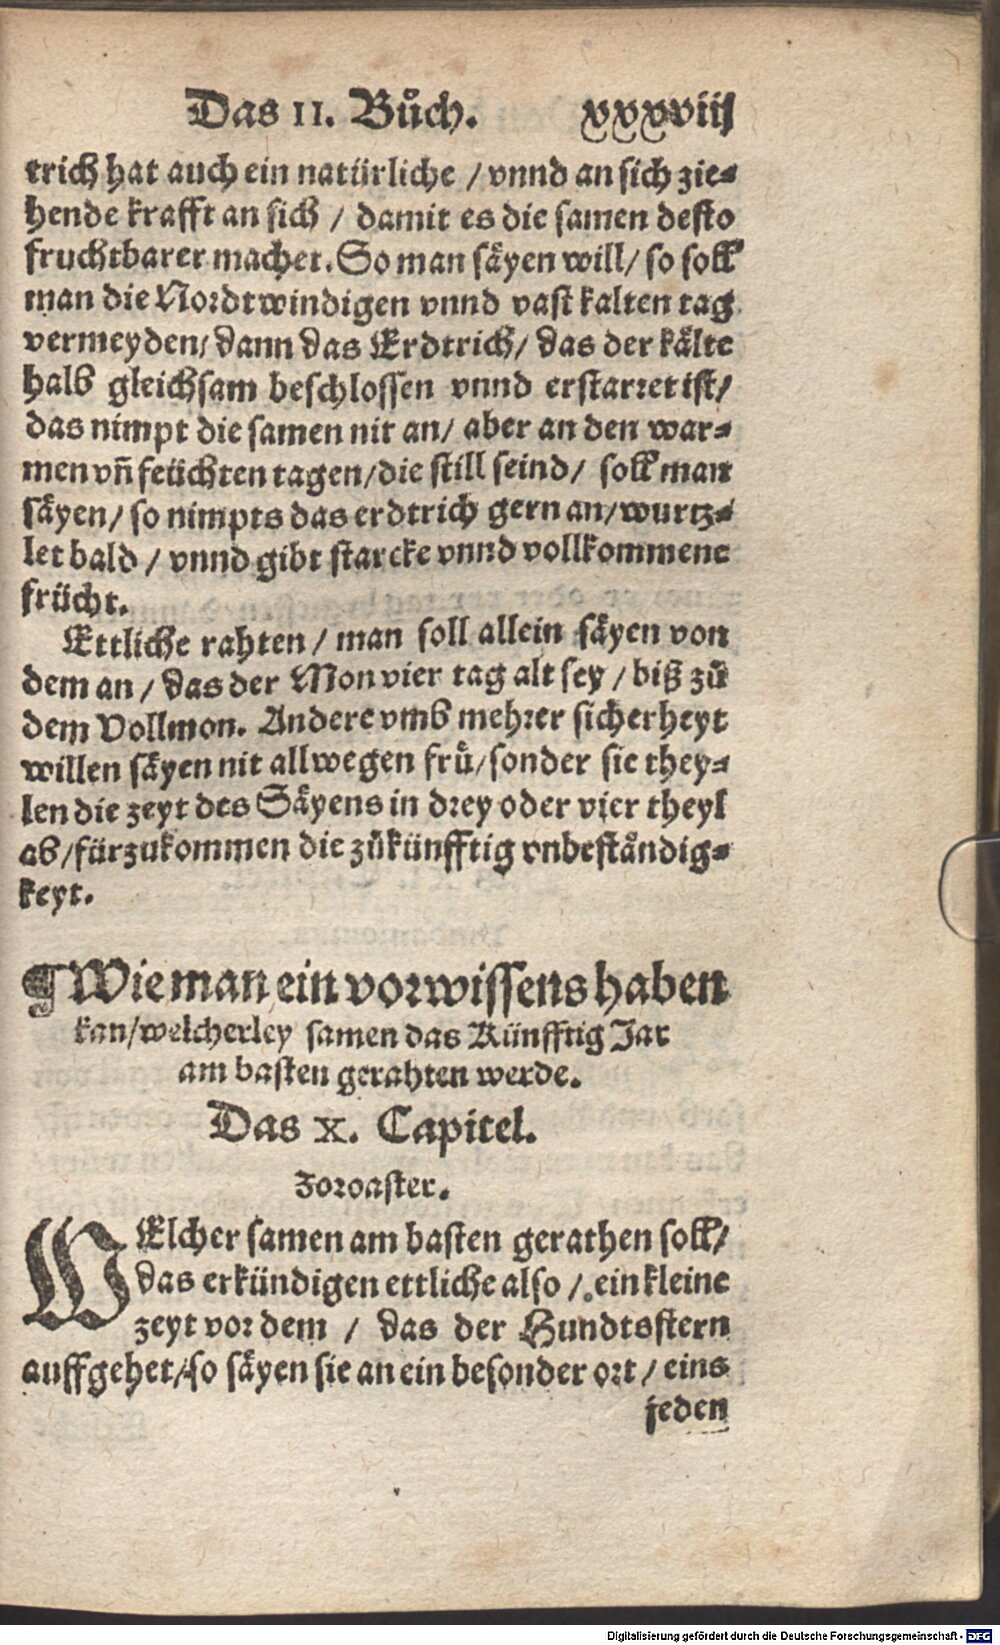 Das II. Bůch. xxxviij
trich hat auch ein natürliche / vnnd an sich zie-
hende krafft an sich / damit es die samen desto
fruchtbarer machet. So man säyen will / so soll
man die Nordtwindigen vnnd vast kalten tag
vermeyden / dann das Erdtrich / das der kälte
halb gleichsam beschlossen vnnd erstarret ist /
das nimpt die samen nit an / aber an den war-
men vñ feüchten tagen / die still seind / soll man
säyen / so nimpts das erdtrich gern an / wurtz-
let bald / vnnd gibt starcke vnnd vollkommene
frücht.
Ettliche rahten / man soll allein säyen von
dem an / das der Mon vier tag alt sey / biß zů
dem Vollmon. Andere vmb mehrer sicherheyt
willen säyen nit allwegen frů / sonder sie they-
len die zeyt des Säyens in drey oder vier theyl
ab / fürzukommen die zůkünfftig vnbeständig-
keyt.
¶ Wie man ein vorwissens haben
kan / welcherley samen das Künfftig Jar
am basten gerahten werde.
Das X. Capitel.
Zoroaster.
WElcher samen am basten gerathen soll /
das erkündigen ettliche also / ein kleine
zeyt vor dem / das der Hundtsstern
auffgehet / so säyen sie an ein besonder ort / eins
jeden
Digitalisierung gefördert durch die Deutsche Forschungsgemeinschaft - DFG